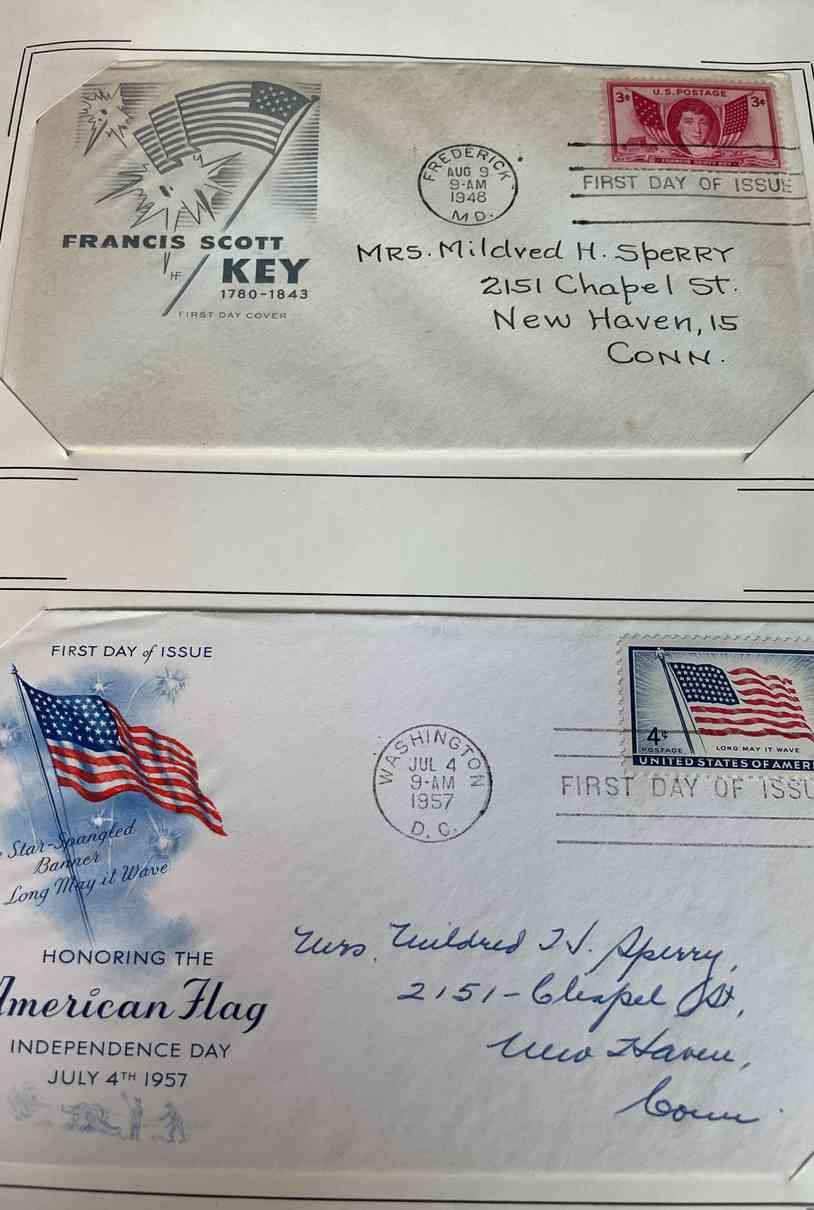 U.S. POSTAGE
3¢ 3¢
FREDERICK
AUG 9
9-AM
1948
MD.
FIRST DAY OF ISSUE
FRANCIS SCOTT
KEY
HF
1780-1843
FIRST DAY COVER
MRS. Mildred H. SpeRRY
2151 Chapel St.
New Haven, 15
CONN.
FIRST DAY of ISSUE
4¢
POSTAGE
LONG MAY IT WAVE
UNITED STATES OF AMERI
WASHINGTON
JUL 4
9-AM
1957
D. C.
FIRST DAY OF ISSU
Star-Spangled
Banner
Long May it Wave
HONORING THE
American Flag
INDEPENDENCE DAY
JULY 4TH 1957
Mrs. Mildred H. Sperry,
2151-Chapel St,
New Haven,
Conn.